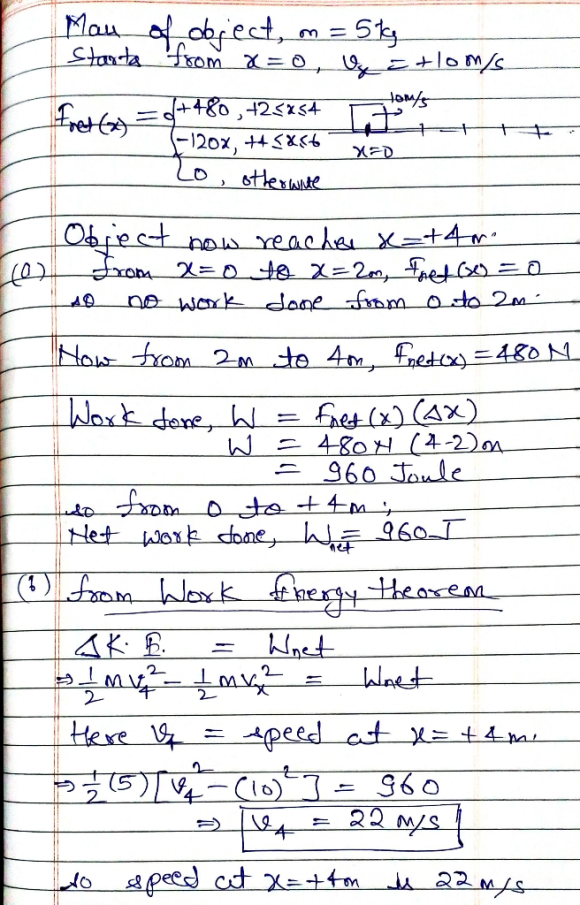 Mass of object, m = 5kg
Starts from x = 0, vx = +10 m/s
Fnet(x) = { +480, +2≤x≤4
-120x, +4≤x≤6
0, otherwise
10m/s
x=0
Object now reaches x=+4m.
(a) from x=0 to x=2m, Fnet(x) = 0
so no work done from 0 to 2m.
Now from 2m to 4m, Fnet(x) = 480 N
Work done, W = Fnet(x) (Δx)
W = 480N (4-2)m
= 960 Joule
so from 0 to +4m;
Net work done, Wnet = 960 J
(b) from Work Energy theorem
ΔK.E. = Wnet
⇒ 1/2 m v4² - 1/2 m vx² = Wnet
Here v4 = speed at x=+4m.
⇒ 1/2 (5) [v4² - (10)²] = 960
⇒ v4 = 22 m/s
so speed at x=+4m is 22 m/s